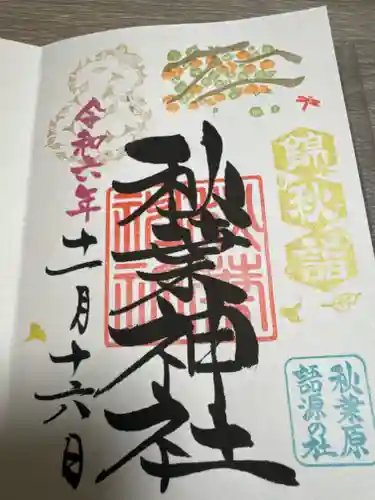 錦秋詣
秋葉原
語源の社
秋葉神社
令和六年
十一月十六日